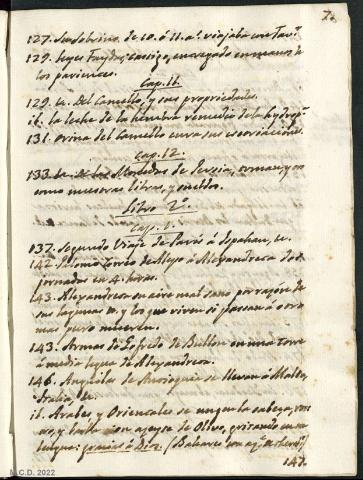 7.
127. Su Sobrino de 10. ó 11. aˢ viajaba con Tavʳ
129. Leyes castigo, en manos de
los parientes.
Cap. 11.
129. &. Del Camello, y sus propriedades.
ib. la leche de la hembra remedio de la hydropˢ
131. orina del Camello cura sus escoriaciones.
Cap. 12.
133. &. de las Monedas de Persia,
como nuestras libras, y sueldos.
Libro 2º
Cap. 1º
137. Segundo Viaje de Paris á Ispahan, &.
142. de Alepo á Alexandreta dos
jornadas en 4. horas.
143. Alexandreta en aire mal sano por razon de
sus lagunas &. y los que viven si passan á otro
mas puro mueren.
143. Armas de Gofredo de Bullon en una torre
á media legua de Alexandreta.
146. Anguilas de Antioquia se llevan á Malta,
Italia &.
ib. Arabes, y Orientales se ungen la cabeza, ros-
tro, y barba con azeyte de Olivo, gritando en su
lengua: gracias á Dios. (Baleares con
147.
M.C.D. 2022